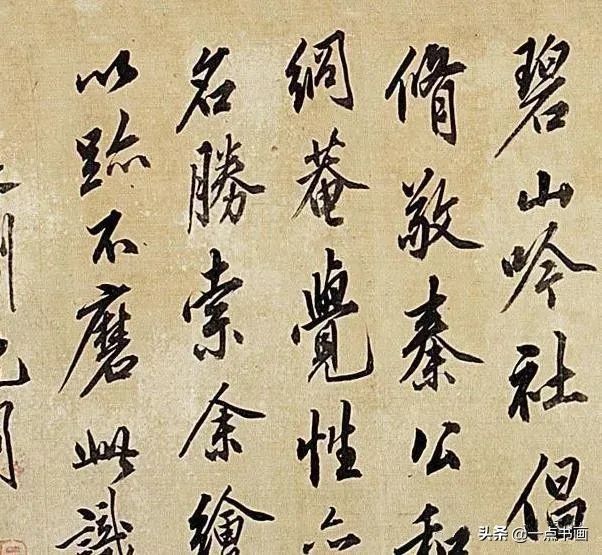 碧山吟社倡
脩敬秦公和
菴覺性
名勝索余繪
以跡不磨此識
头条 @一点书画